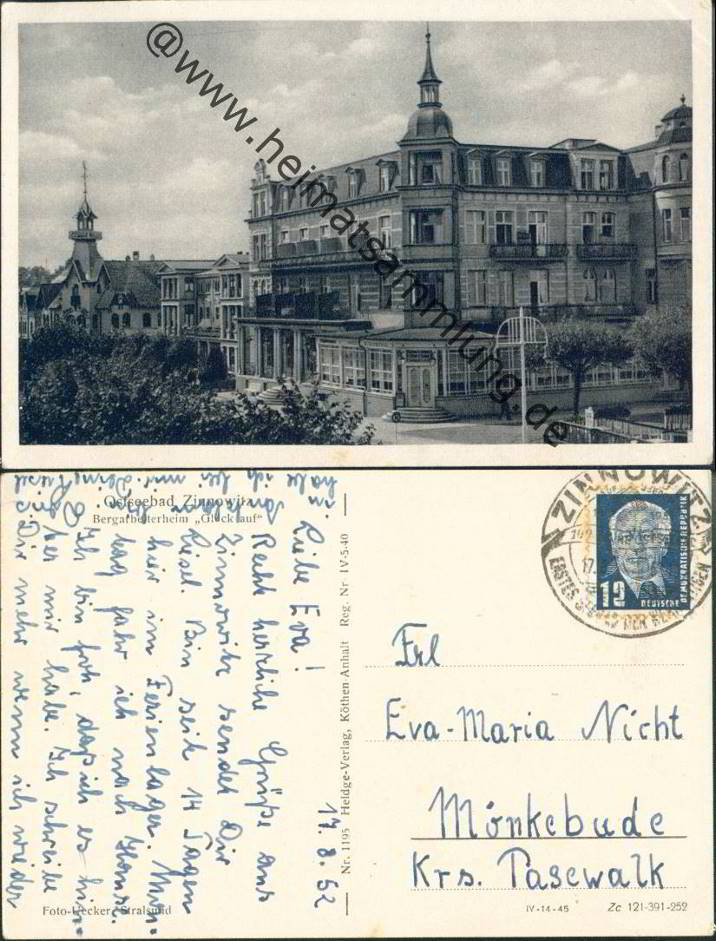 @www.heimatsammlung.de
Ostseebad Zinnowitz
Bergarbeiterheim „Glück auf"
17.8.52
Liebe Eva!
Recht herzliche Grüße aus
Zinnowitz sendet Dir
Bin seit 14 Tagen
hier im Ferienlager. Mor-
tag fahr ich nach Hause.
Ich bin froh, daß ich es hin-
ter mir habe. Ich schreibe
Dir mehr wenn ich wieder
Foto-Uecker, Stralsund
Nr. 1195 Heldge-Verlag, Köthen-Anhalt Reg. Nr IV-5-40
ZINNOWITZ
ERSTES
DER
12
DEUTSCHE
DEMOKRATISCHE REPUBLIK
Frl
Eva-Maria Nicht
Mönkebude
Krs. Pasewalk
IV-14-45 Zc 121-391-252